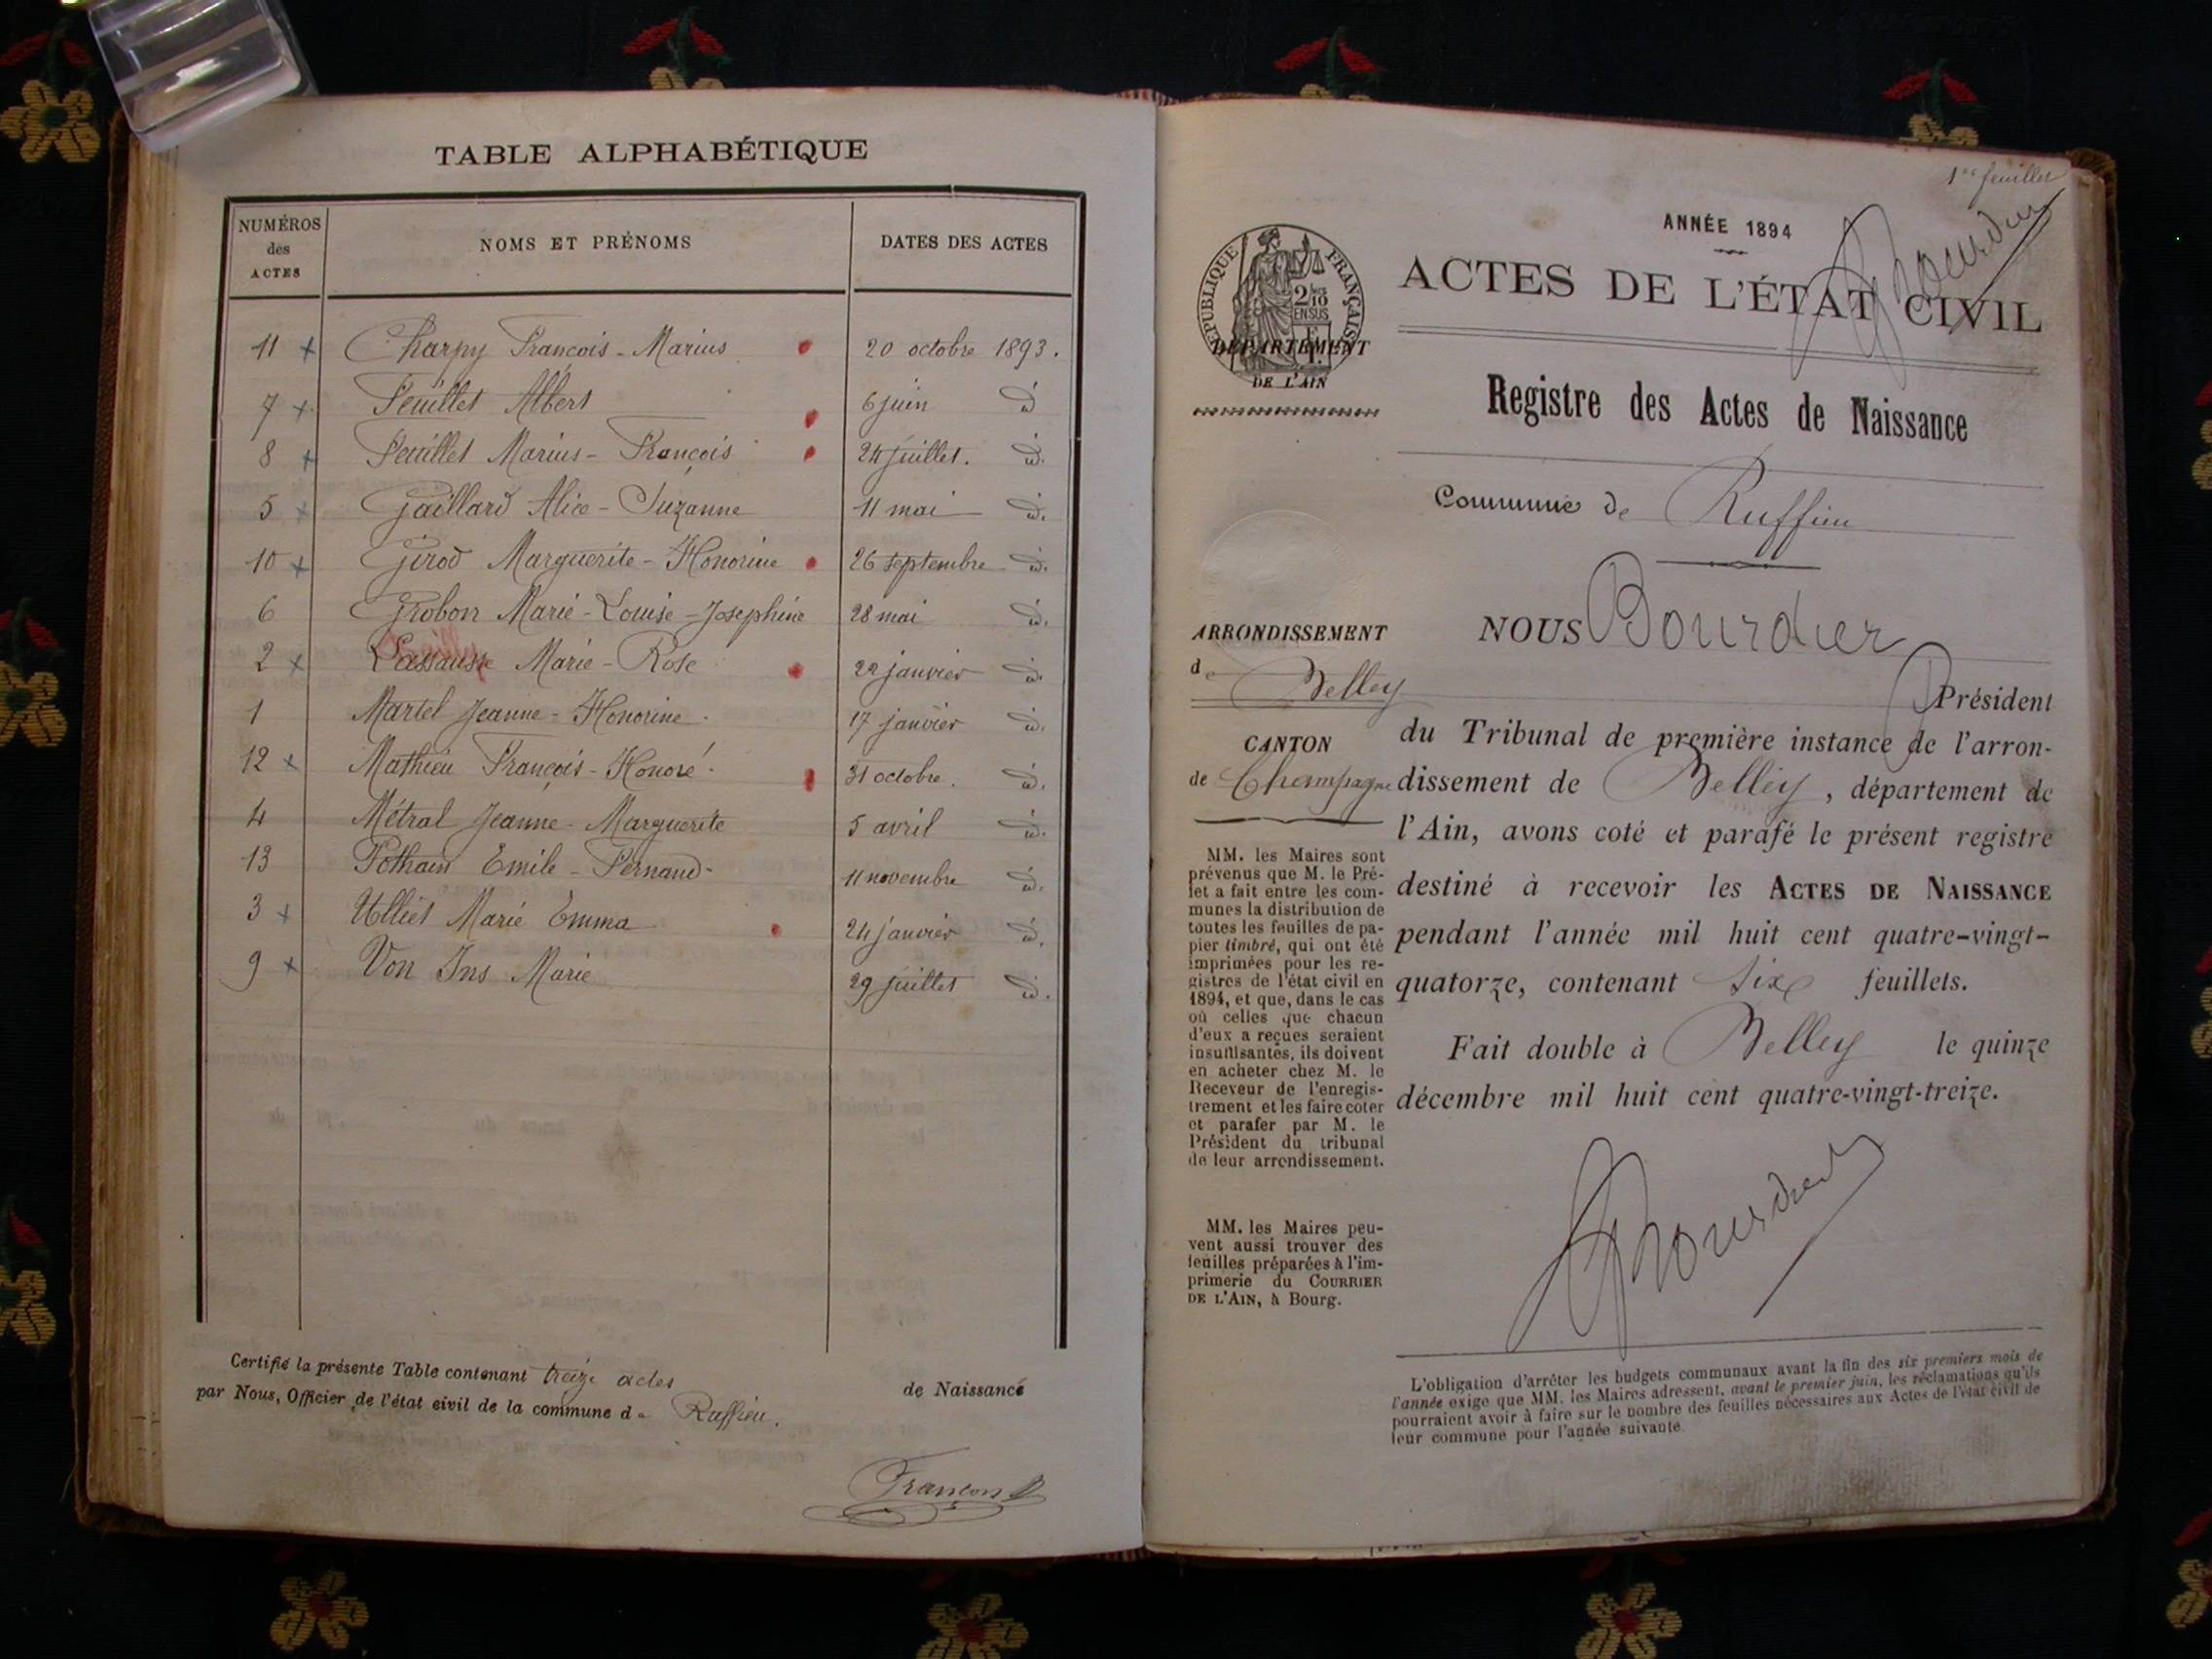 TABLE ALPHABÉTIQUE
NUMÉROS des ACTES NOMS ET PRÉNOMS DATES DES ACTES
11 x Charpy François-Marius 20 octobre 1893.
7 x Feuillet Albert 6 juin d
8 x Feuillet Marius-François 24 juillet. id.
5 x Gaillard Alice-Suzanne 11 mai id.
10 x Girod Marguerite-Honorine 26 septembre id.
6 Grobon Marie-Louise-Joséphine 28 mai id.
2 x Marie-Rose 22 janvier id.
1 Martel Jeanne-Honorine. 17 janvier id.
12 x Mathieu François-Honoré. 31 octobre. id.
4 Métral Jeanne-Marguerite 5 avril id.
13 Pothain Emile-Fernand- 11 novembre id.
3 x Ulliet Marie Emma 24 janvier id.
9 x Von Ins Marie 29 juillet id.
Certifié la présente Table contenant treize actes de Naissance
par Nous, Officier de l'état civil de la commune de Ruffieu.
Francon
1er feuillet
Bourdier
ANNÉE 1894
ACTES DE L'ÉTAT CIVIL
RÉPUBLIQUE FRANÇAISE
2/10 EN SUS
DÉPARTEMENT
DE L'AIN
Registre des Actes de Naissance
Commune de Ruffieu
ARRONDISSEMENT
de Belley
CANTON
de Champagne
MM. les Maires sont
prévenus que M. le Pré-
fet a fait entre les com-
munes la distribution de
toutes les feuilles de pa-
pier timbré, qui ont été
imprimées pour les re-
gistres de l'état civil en
1894, et que, dans le cas
où celles que chacun
d'eux a reçues seraient
insuffisantes, ils doivent
en acheter chez M. le
Receveur de l'enregis-
trement et les faire coter
et parafer par M. le
Président du tribunal
de leur arrondissement.
MM. les Maires peu-
vent aussi trouver des
feuilles préparées à l'im-
primerie du COURRIER
DE L'AIN, à Bourg.
NOUS Bourdier
Président
du Tribunal de première instance de l'arron-
dissement de Belley, département de
l'Ain, avons coté et parafé le présent registre
destiné à recevoir les ACTES DE NAISSANCE
pendant l'année mil huit cent quatre-vingt-
quatorze, contenant six feuillets.
Fait double à Belley le quinze
décembre mil huit cent quatre-vingt-treize.
Bourdier
L'obligation d'arrêter les budgets communaux avant la fin des six premiers mois de
l'année exige que MM. les Maires adressent, avant le premier juin, les réclamations qu'ils
pourraient avoir à faire sur le nombre des feuilles nécessaires aux Actes de l'état civil de
leur commune pour l'année suivante.